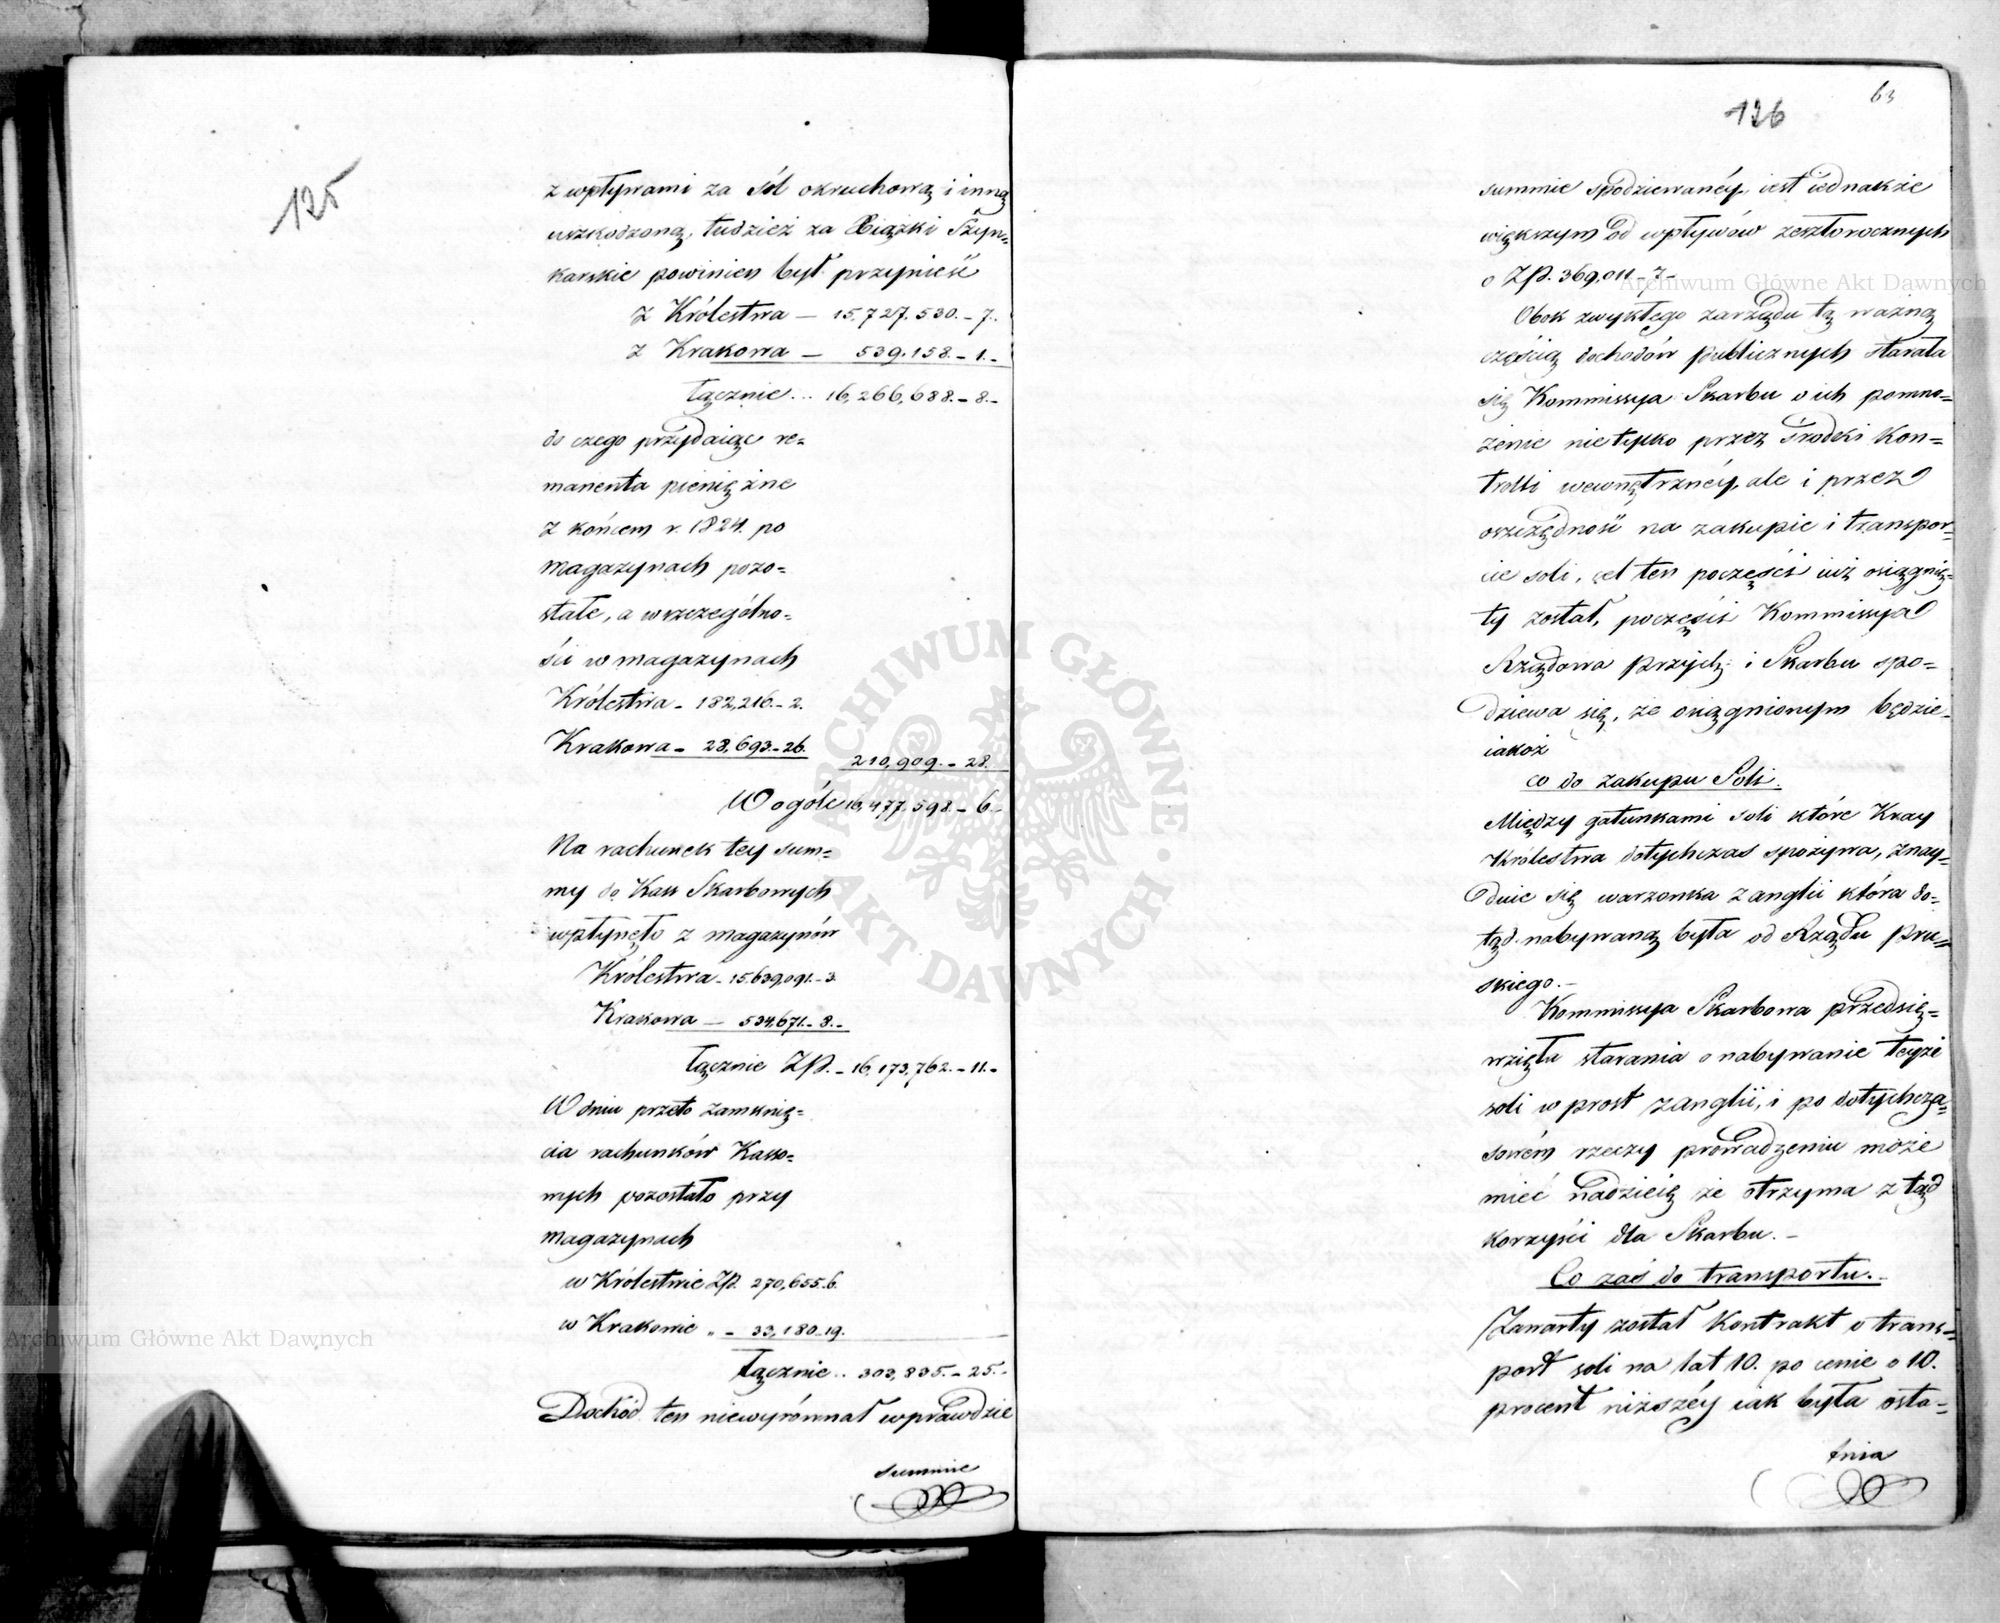 125
z wpływami za Sól okruchową i inną
uszkodzoną, tudzież za Xiążki Szyn=
karskie powinien był przynieść
z Królestwa — 15,727,530.-7.
z Krakowa — 539,158.-1.-
Łącznie... 16,266,688.-8.-
do czego przydaiąc re=
manenta pieniężne
z końcem r. 1824. po
magazynach pozo=
stałe, a w szczególno=
ści w magazynach
Królestwa - 182,216.-2.
Krakowa - 28,693.-26.
210,909.-28.
W ogóle 16,477,598.-6.-
Na rachunek tey sum=
my do Kass Skarbowych
wpłynęło z magazynów
Królestwa - 15,639,091.-3.
Krakowa — 534,671.-8.-
Łącznie Złp. - 16,173,762.-11.-
W dniu przeto zamknię=
cia rachunków Kasso=
wych pozostało przy
magazynach
w Królestwie Złp. 270,655.-6.
w Krakowie „ - 33,180.-19.
Łącznie .. 303,835.-25.-
Dochód ten niewyrównał wprawdzie
summie
126
63
summie spodziewanéy, iest iednakże
większym od wpływów zeszłorocznych
o Złp. 369,011.-7-
Obok zwykłego zarządu tą ważną
częścią dochodów publicznych starała
się Kommissya Skarbu o ich pomno=
żenie nie tylko przez środki Kon=
trolli wewnętrznéy, ale i przez
oszczędność na zakupie i transpor=
cie soli, cel ten poczęści iuż osiągnię=
ty został, poczęści Kommissya
Rządowa przych: i Skarbu spo=
dziewa się, że osiągnionym będzie.
iakoż
co do zakupu Soli.
Między gatunkami soli które Kray
Królestwa dotychczas spożywa, znay=
duie się warzonka z anglii która do=
tąd nabywaną była od Rządu pru=
skiego.-
Kommissya Skarbowa przedsię=
wzięła starania o nabywanie teyże
soli w prost z anglii, i po dotychcza=
sowém rzeczy prowadzeniu może
mieć nadzieię że otrzyma z tąd
korzyści dla Skarbu.-
Co zaś do transportu.-
Zawarty został Kontrakt o trans=
port soli na lat 10. po cenie o 10.
procent niższéy iak była osta=
tnia
Archiwum Główne Akt Dawnych
Archiwum Główne Akt Dawnych
ARCHIWUM GŁÓWNE AKT DAWNYCH